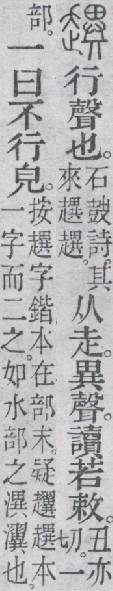 趩行聲也。石鼔詩。其來趩趩。从走。異聲。讀若敕。丑亦切。一
部。一曰不行皃。按趩字鍇本在部末。疑𧾰趩本一字而二之。如水部之潩、瀷也。